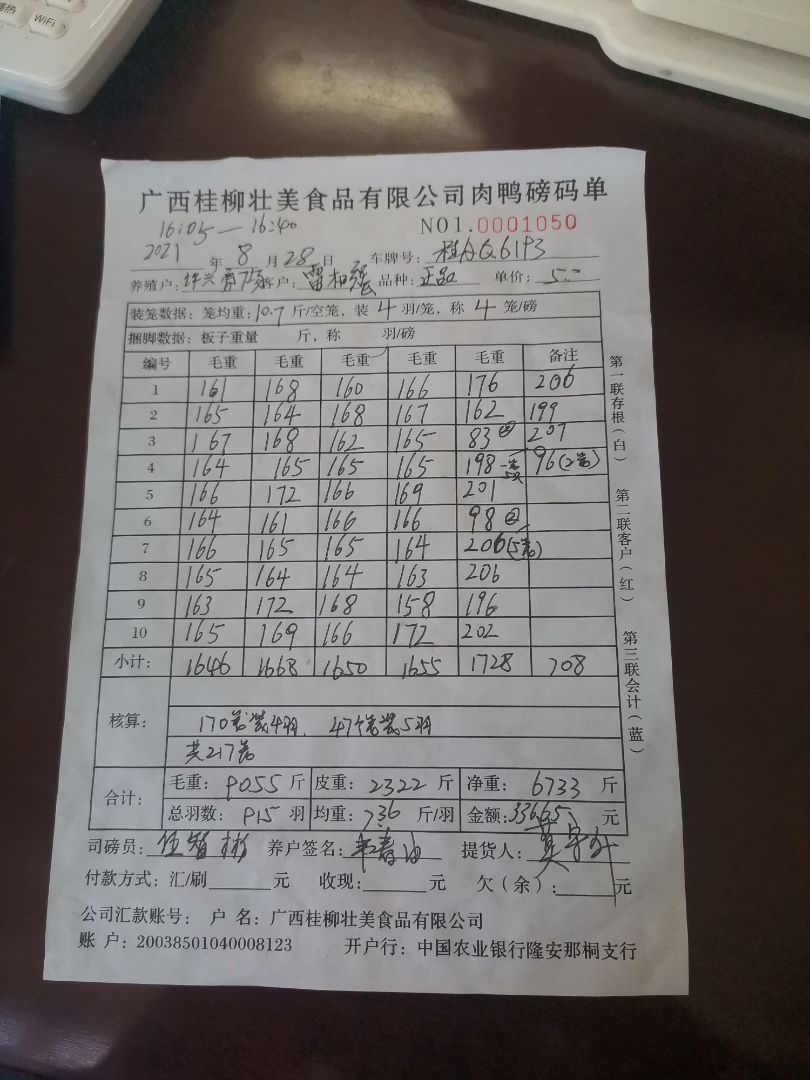 WiFi
广西桂柳壮美食品有限公司肉鸭磅码单
16:05—16:40 NO1.0001050
2021年8月28日 车牌号：桂AQ6193
养殖户： 客户：雷相强 品种：正品 单价：5.00
装笼数据：笼均重：10.7斤/空笼，装4羽/笼，称4笼/磅
捆脚数据：板子重量 斤，称 羽/磅
编号 毛重 毛重 毛重 毛重 毛重 备注
1 161 168 160 166 176 206
2 165 164 168 167 162 199
3 167 168 162 165 83② 207
4 164 165 165 165 198 96(2笼)
5 166 172 166 169 201
6 164 161 166 166 98②
7 166 165 165 164 206(5笼)
8 165 164 164 163 206
9 163 172 168 158 196
10 165 169 166 172 202
小计： 1646 1668 1650 1655 1728 708
核算： 170笼装4羽、47个笼装5羽
共217笼
合计： 毛重：9055斤 皮重：2322斤 净重：6733斤
总羽数：915羽 均重：7.36斤/羽 金额：33665元
司磅员： 养户签名： 提货人：
付款方式：汇/刷 元 收现： 元 欠（余）： 元
公司汇款账号： 户 名：广西桂柳壮美食品有限公司
账 户：20038501040008123 开户行：中国农业银行隆安那桐支行
第一联存根（白）
第二联客户（红）
第三联会计（蓝）